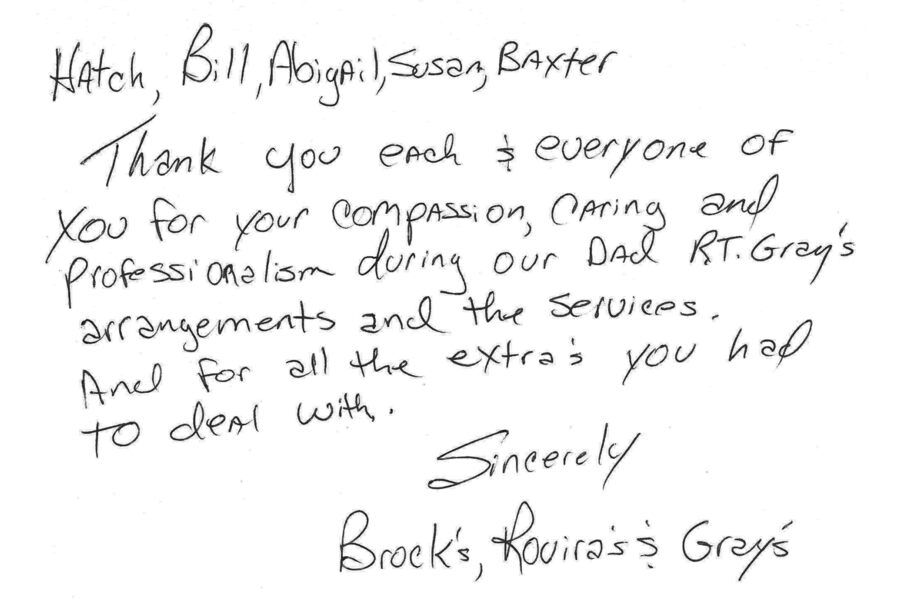 Hatch, Bill, Abigail, Susan, Baxter
Thank you each & everyone of
you for your compassion, caring and
professionalism during our Dad R.T. Gray's
arrangements and the services.
And for all the extra's you had
to deal with.
Sincerely
Brock's, Rovira's & Gray's